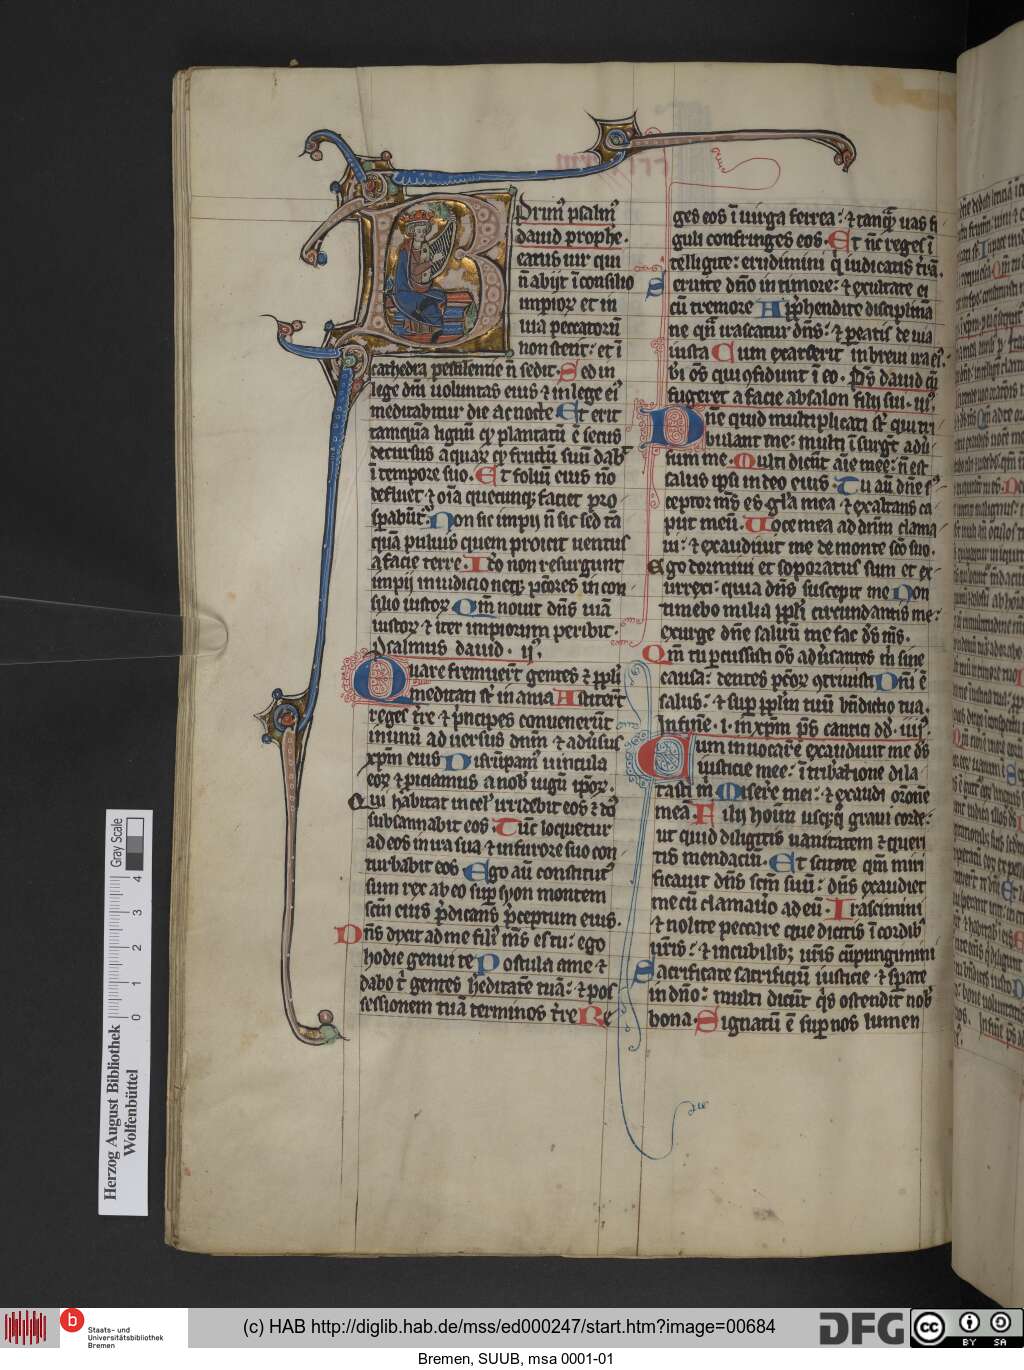 Primꝰ psalmꝰ
dauid prophe.
eatus uir qui
ñ abijt ı̄ consilio
impioꝝ et in
uia peccatorū
non stetit: et ı̄
cathedra pestilentie ñ sedit. Sed in
lege dnı̄ uoluntas eius ⁊ in lege eiꝰ
meditabitur die ac nocte. Et erit
tamquā lignū qđ plantatū ē secus
decursus aquaꝝ qđ fructū suū dabit
ı̄ tempore suo. Et foliū eius nō
defluet ⁊ oı̄a quecunqꝫ faciet pro
spabūt̄. Non sic impij ñ sic sed tā
quā puluis quem proicit uentus
a facie terre. Iđo non resurgunt
impij in iudicio neqꝫ pctōres in con
silio iustoꝝ. Qm̄ nouit dñs uiā
iustoꝝ ⁊ iter impiorum peribit.
Psalmus dauid. ijꝰ.
Quare fremuer̄t gentes ⁊ ppłi
meditati st̄ in ania. Astiter̄t
reges tr̄e ⁊ p̄ncipes conuenerūt
in unū aduersus dnm̄ ⁊ adu̓sus
xpm̄ eius. Dirūpam̄ uincula
eoꝝ ⁊ piciamus a nob̓ iugū ipoꝝ.
Qui habitat in cel̓ irridebit eos ⁊ dñs
subsannabit eos. Tūc loquetur
ad eos in ira sua ⁊ in furore suo con
turbabit eos. Ego aū constitutꝰ
sum rex ab eo sup syon montem
scm̄ eius p̄dicans p̄ceptum eius.
Dñs dixit ad me filiꝰ mꝰs es tu: ego
hodie genui te. Postula a me ⁊
dabo t̄ gentes hereditatē tuā: ⁊ pos
sessionem tuā terminos tr̄e. Re
ges eos ı̄ uirga ferrea: ⁊ tanqȝ uas fi
guli confringes eos. Et n̄c reges ı̄
telligite: erudimini q̓ iudicatis tr̄ā.
Seruite dño in timore: ⁊ exultate ei
cū tremore. Apphendite disciplinā
ne qn̄ irascatur dñs: ⁊ peatis de uia
iusta. Cum exarserit in breui ira eiꝰ:
bı̄ oēs qui ꝯfidunt ı̄ eo. Ps̄ dauid cū
fugeret a facie absalon filij sui. iijꝰ.
Dñe quid multiplicati st̄ qui tri
bulant me: multi ı̄surgt̄ adu̓
sum me. Multi dicūt aı̄e mee: ñ est
salus ipsi in deo eius. Tu aū dñe sꝰ
ceptor mꝰs es gl̓a mea ⁊ exaltans ca
put meū. Uoce mea ad dnm̄ clama
ui: ⁊ exaudiuit me de monte scō suo.
Ego dormiui et soporatus sum et ex
urrexi: quia dñs suscepit me. Non
timebo milia ppłi circundantis me:
exurge dñe saluū me fac ds̄ mꝰs.
Qm̄ tu percussisti oēs adu̓santes m̓ sine
causa: dentes pctōꝝ ꝯtriuisti. Dnı̄ ē
salus: ⁊ sup pplm̄ tuū bn̄dictio tua.
In finē. i. in xpm̄ ps̄ cantici dđ. iiijꝰ.
Cum inuocarē exaudiuit me ds̄
iusticie mee: ı̄ tribulatione dila
tasti m̓. Miserē mei: ⁊ exaudi oronē
meā. Filij hoı̄m usqȝq̓ graui corde:
ut quid diligitis uanitatem ⁊ queri
tis mendaciū. Et scitote qm̄ miri
ficauit dñs scm̄ suū: dñs exaudiet
me cū clamauo ad eū. Irascimini
⁊ nolite peccare que dicitis ı̄ cordib̓
uris̄: ⁊ in cubilibꝫ uris̄ cūpungimini.
Sacrificate sacrificiū iusticie ⁊ spate
in dño: multi dicūt q̓s ostendit nob̓
bona. Signatū ē sup nos lumen
Herzog August Bibliothek
Wolfenbüttel
Gray Scale
0 1 2 3 4
b
Staats- und
Universitätsbibliothek
Bremen
(c) HAB http://diglib.hab.de/mss/ed000247/start.htm?image=00684
DFG
cc
BY SA
Bremen, SUUB, msa 0001-01